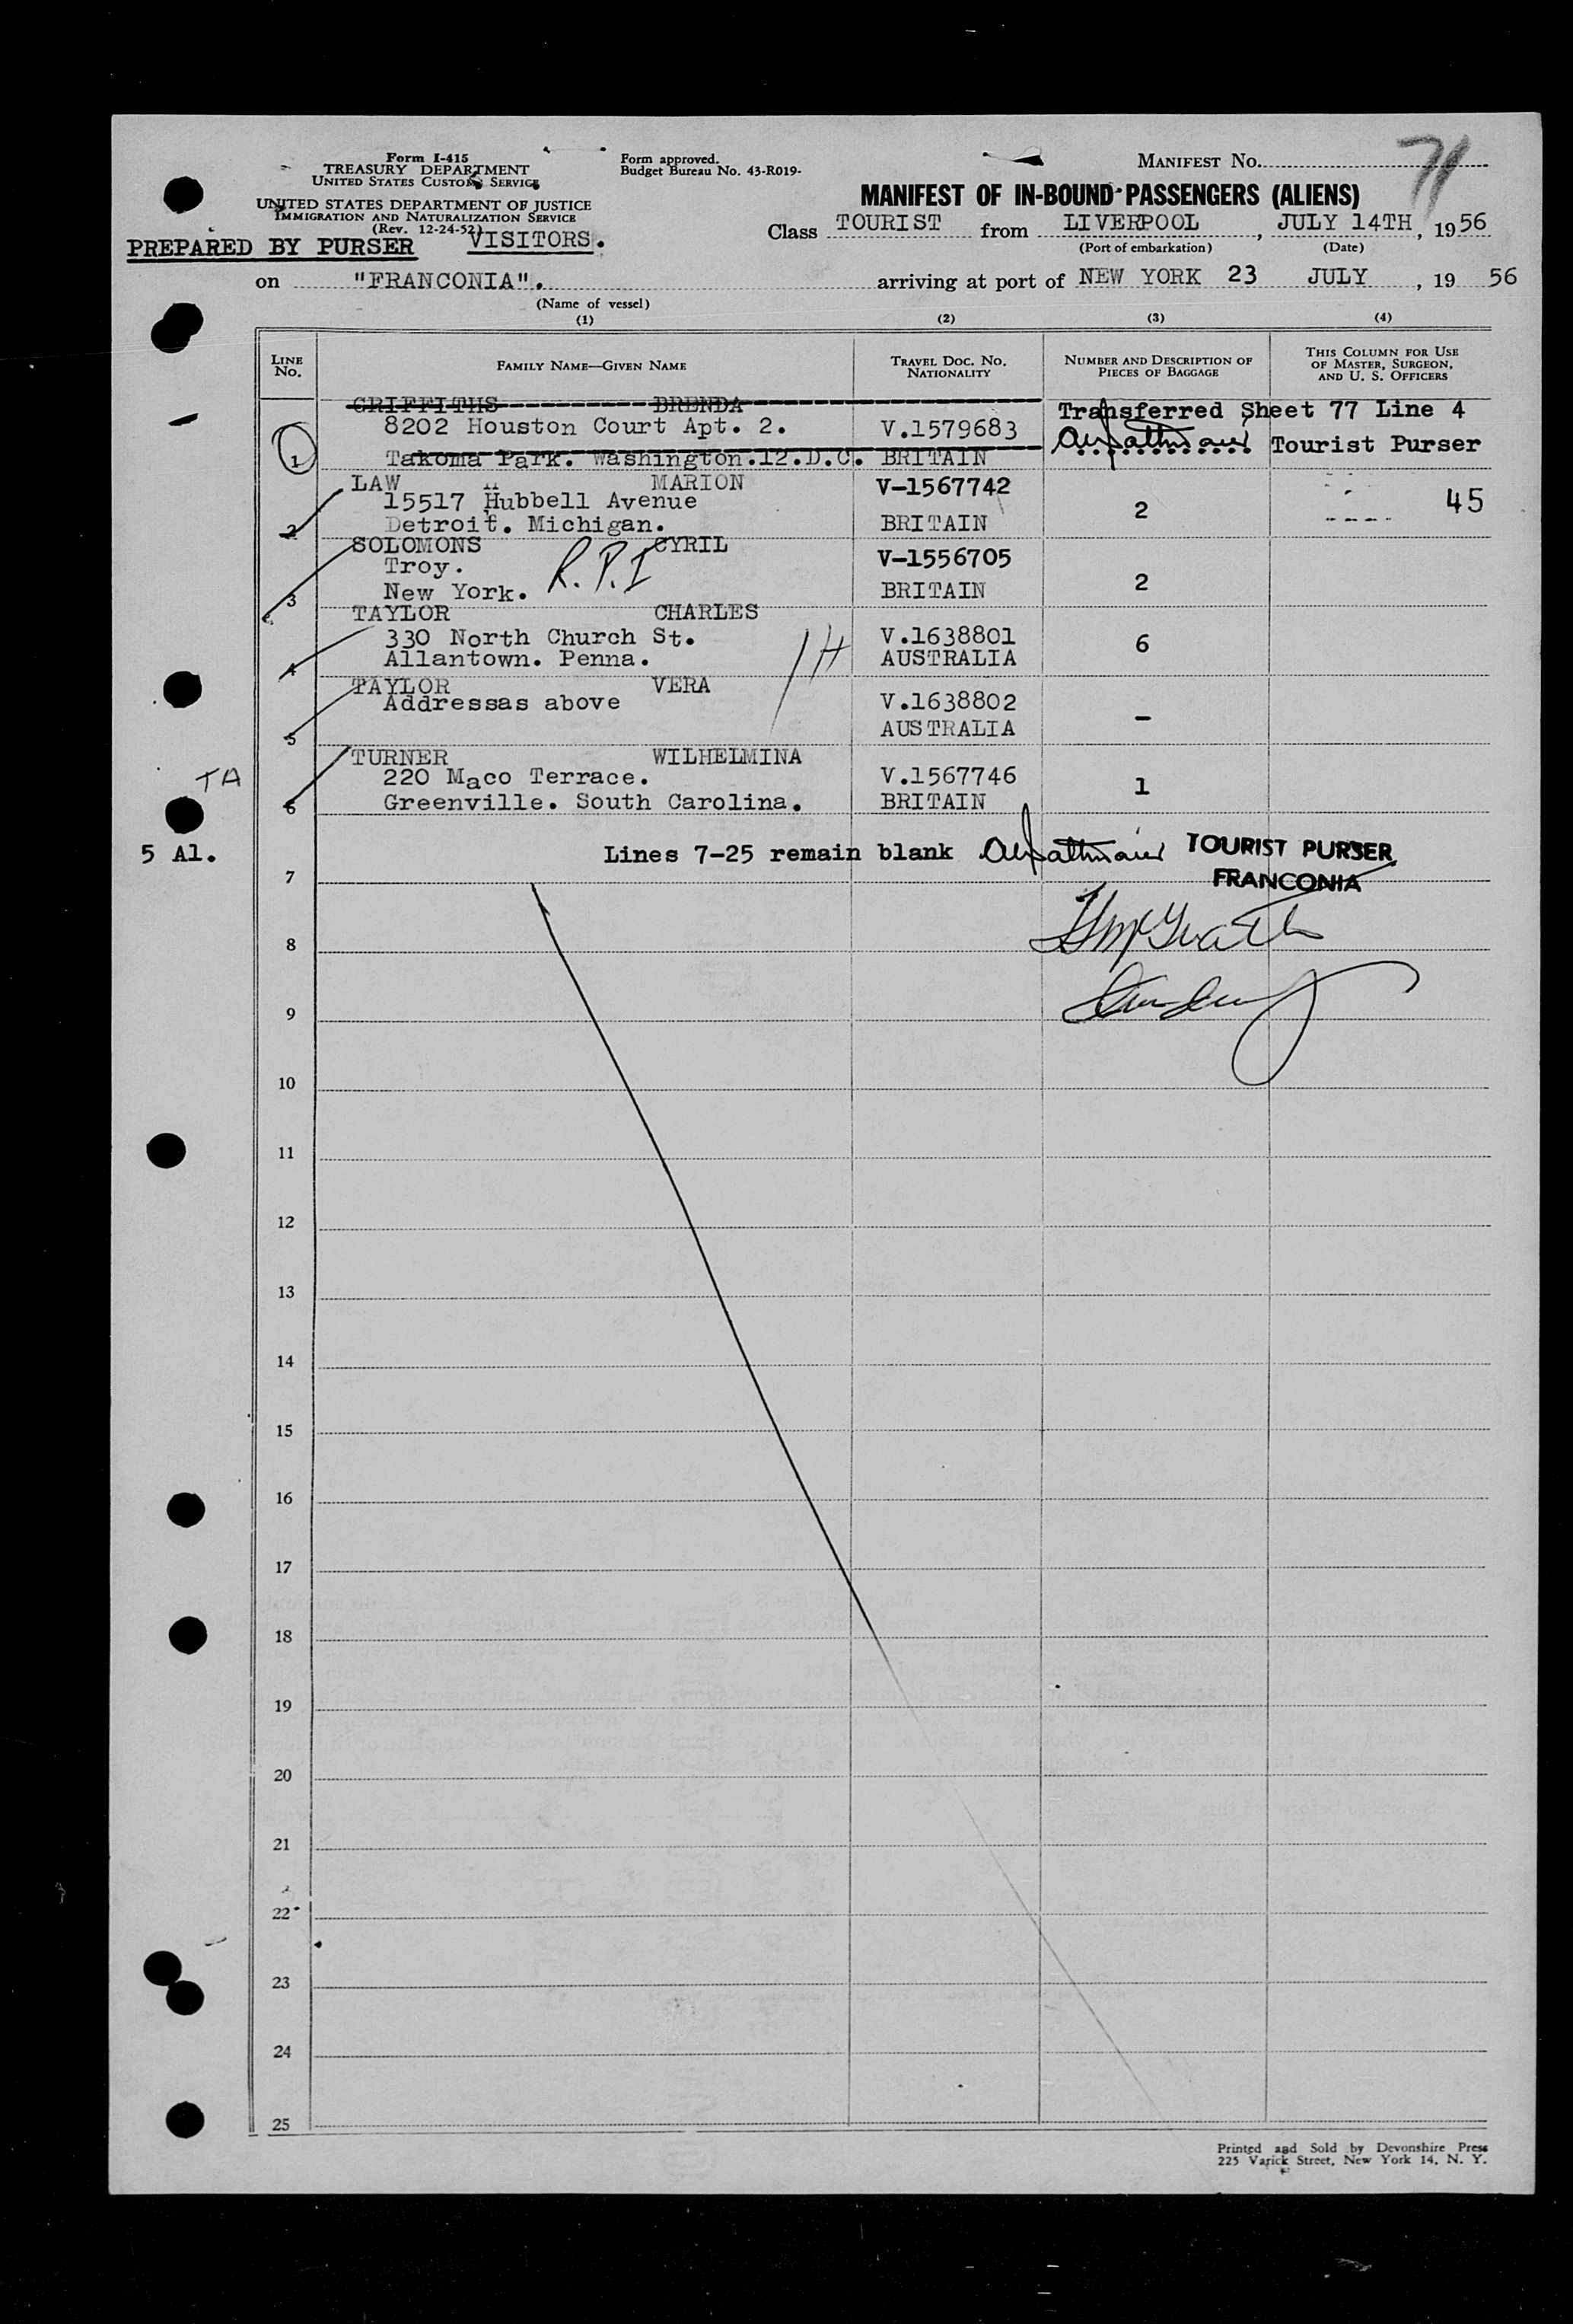 Form I-415
TREASURY DEPARTMENT
UNITED STATES CUSTOMS SERVICE
UNITED STATES DEPARTMENT OF JUSTICE
IMMIGRATION AND NATURALIZATION SERVICE
(Rev. 12-24-52)
PREPARED BY PURSER VISITORS.
Form approved.
Budget Bureau No. 43-R019-
MANIFEST No. 71
MANIFEST OF IN-BOUND PASSENGERS (ALIENS)
Class TOURIST from LIVERPOOL, JULY 14TH, 1956
(Port of embarkation) (Date)
on "FRANCONIA". arriving at port of NEW YORK 23 JULY, 19 56
(Name of vessel)
(1) (2) (3) (4)
LINE No. FAMILY NAME—GIVEN NAME TRAVEL DOC. NO. NATIONALITY NUMBER AND DESCRIPTION OF PIECES OF BAGGAGE THIS COLUMN FOR USE OF MASTER, SURGEON, AND U. S. OFFICERS
GRIFFITHS BRENDA Transferred Sheet 77 Line 4
8202 Houston Court Apt. 2. V.1579683 Tourist Purser
1 Takoma Park. Washington.12.D.C. BRITAIN
LAW MARION V-1567742
15517 Hubbell Avenue 2 45
2 Detroit. Michigan. BRITAIN
SOLOMONS CYRIL V-1556705
Troy. R.P.I
3 New York. BRITAIN 2
TAYLOR CHARLES
330 North Church St. V.1638801 6
4 Allantown. Penna. AUSTRALIA
1H
TAYLOR VERA
Addressas above V.1638802
5 AUSTRALIA -
TURNER WILHELMINA
TA 220 Maco Terrace. V.1567746 1
6 Greenville. South Carolina. BRITAIN
5 Al. Lines 7-25 remain blank TOURIST PURSER
FRANCONIA
7
8
9
10
11
12
13
14
15
16
17
18
19
20
21
22
23
24
25
Printed and Sold by Devonshire Press
225 Varick Street, New York 14, N. Y.